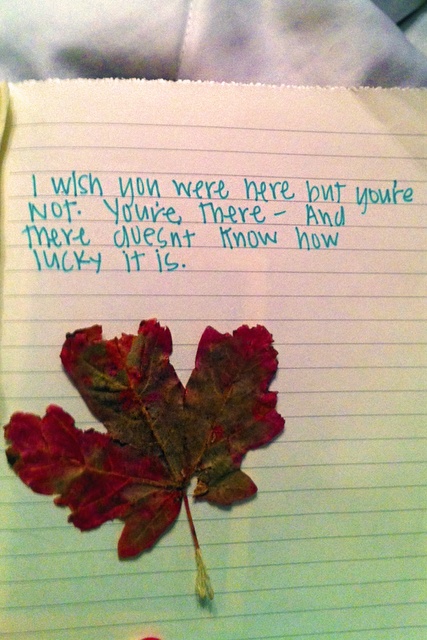 I wish you were here but you're
not. You're, there - And
there doesnt know how
lucky it is.